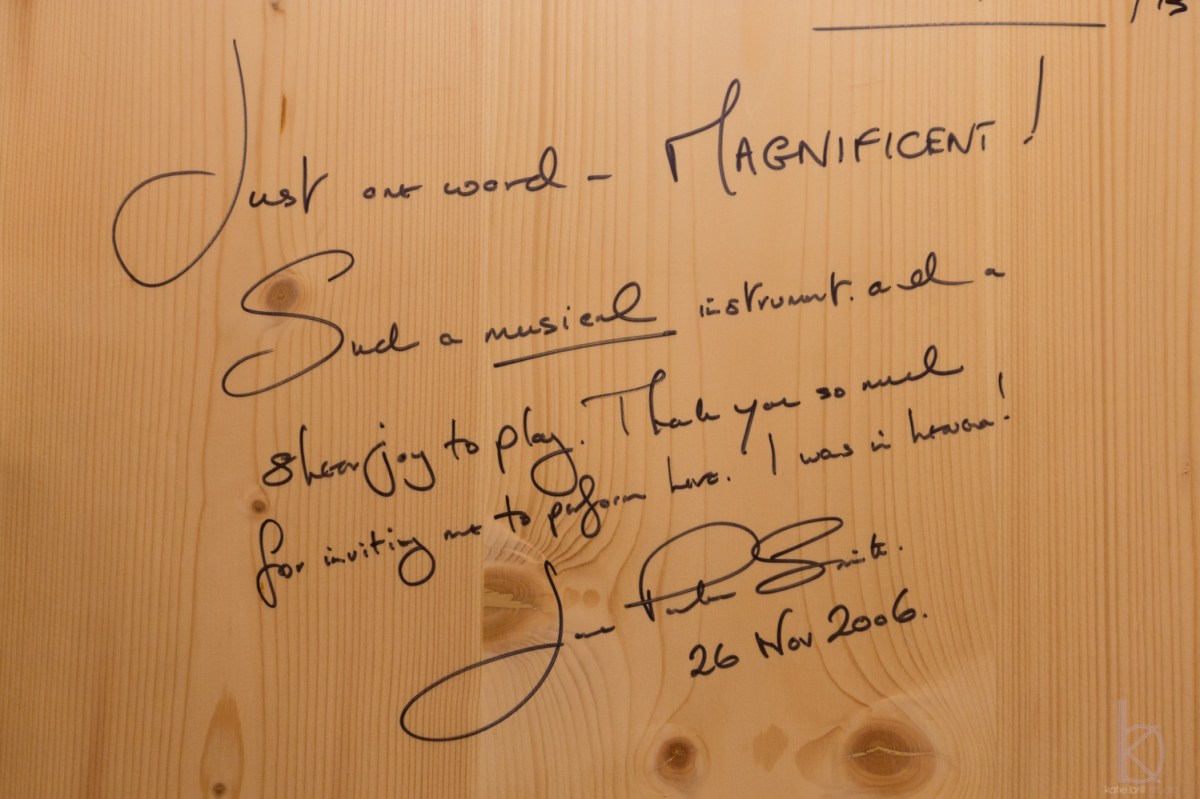 /13
Just one word - MAGNIFICENT!
Such a musical instrument. and a
sheer joy to play. Thank you so much
for inviting me to perform here. I was in heaven!
Jane Parker Smith.
26 Nov 2006.